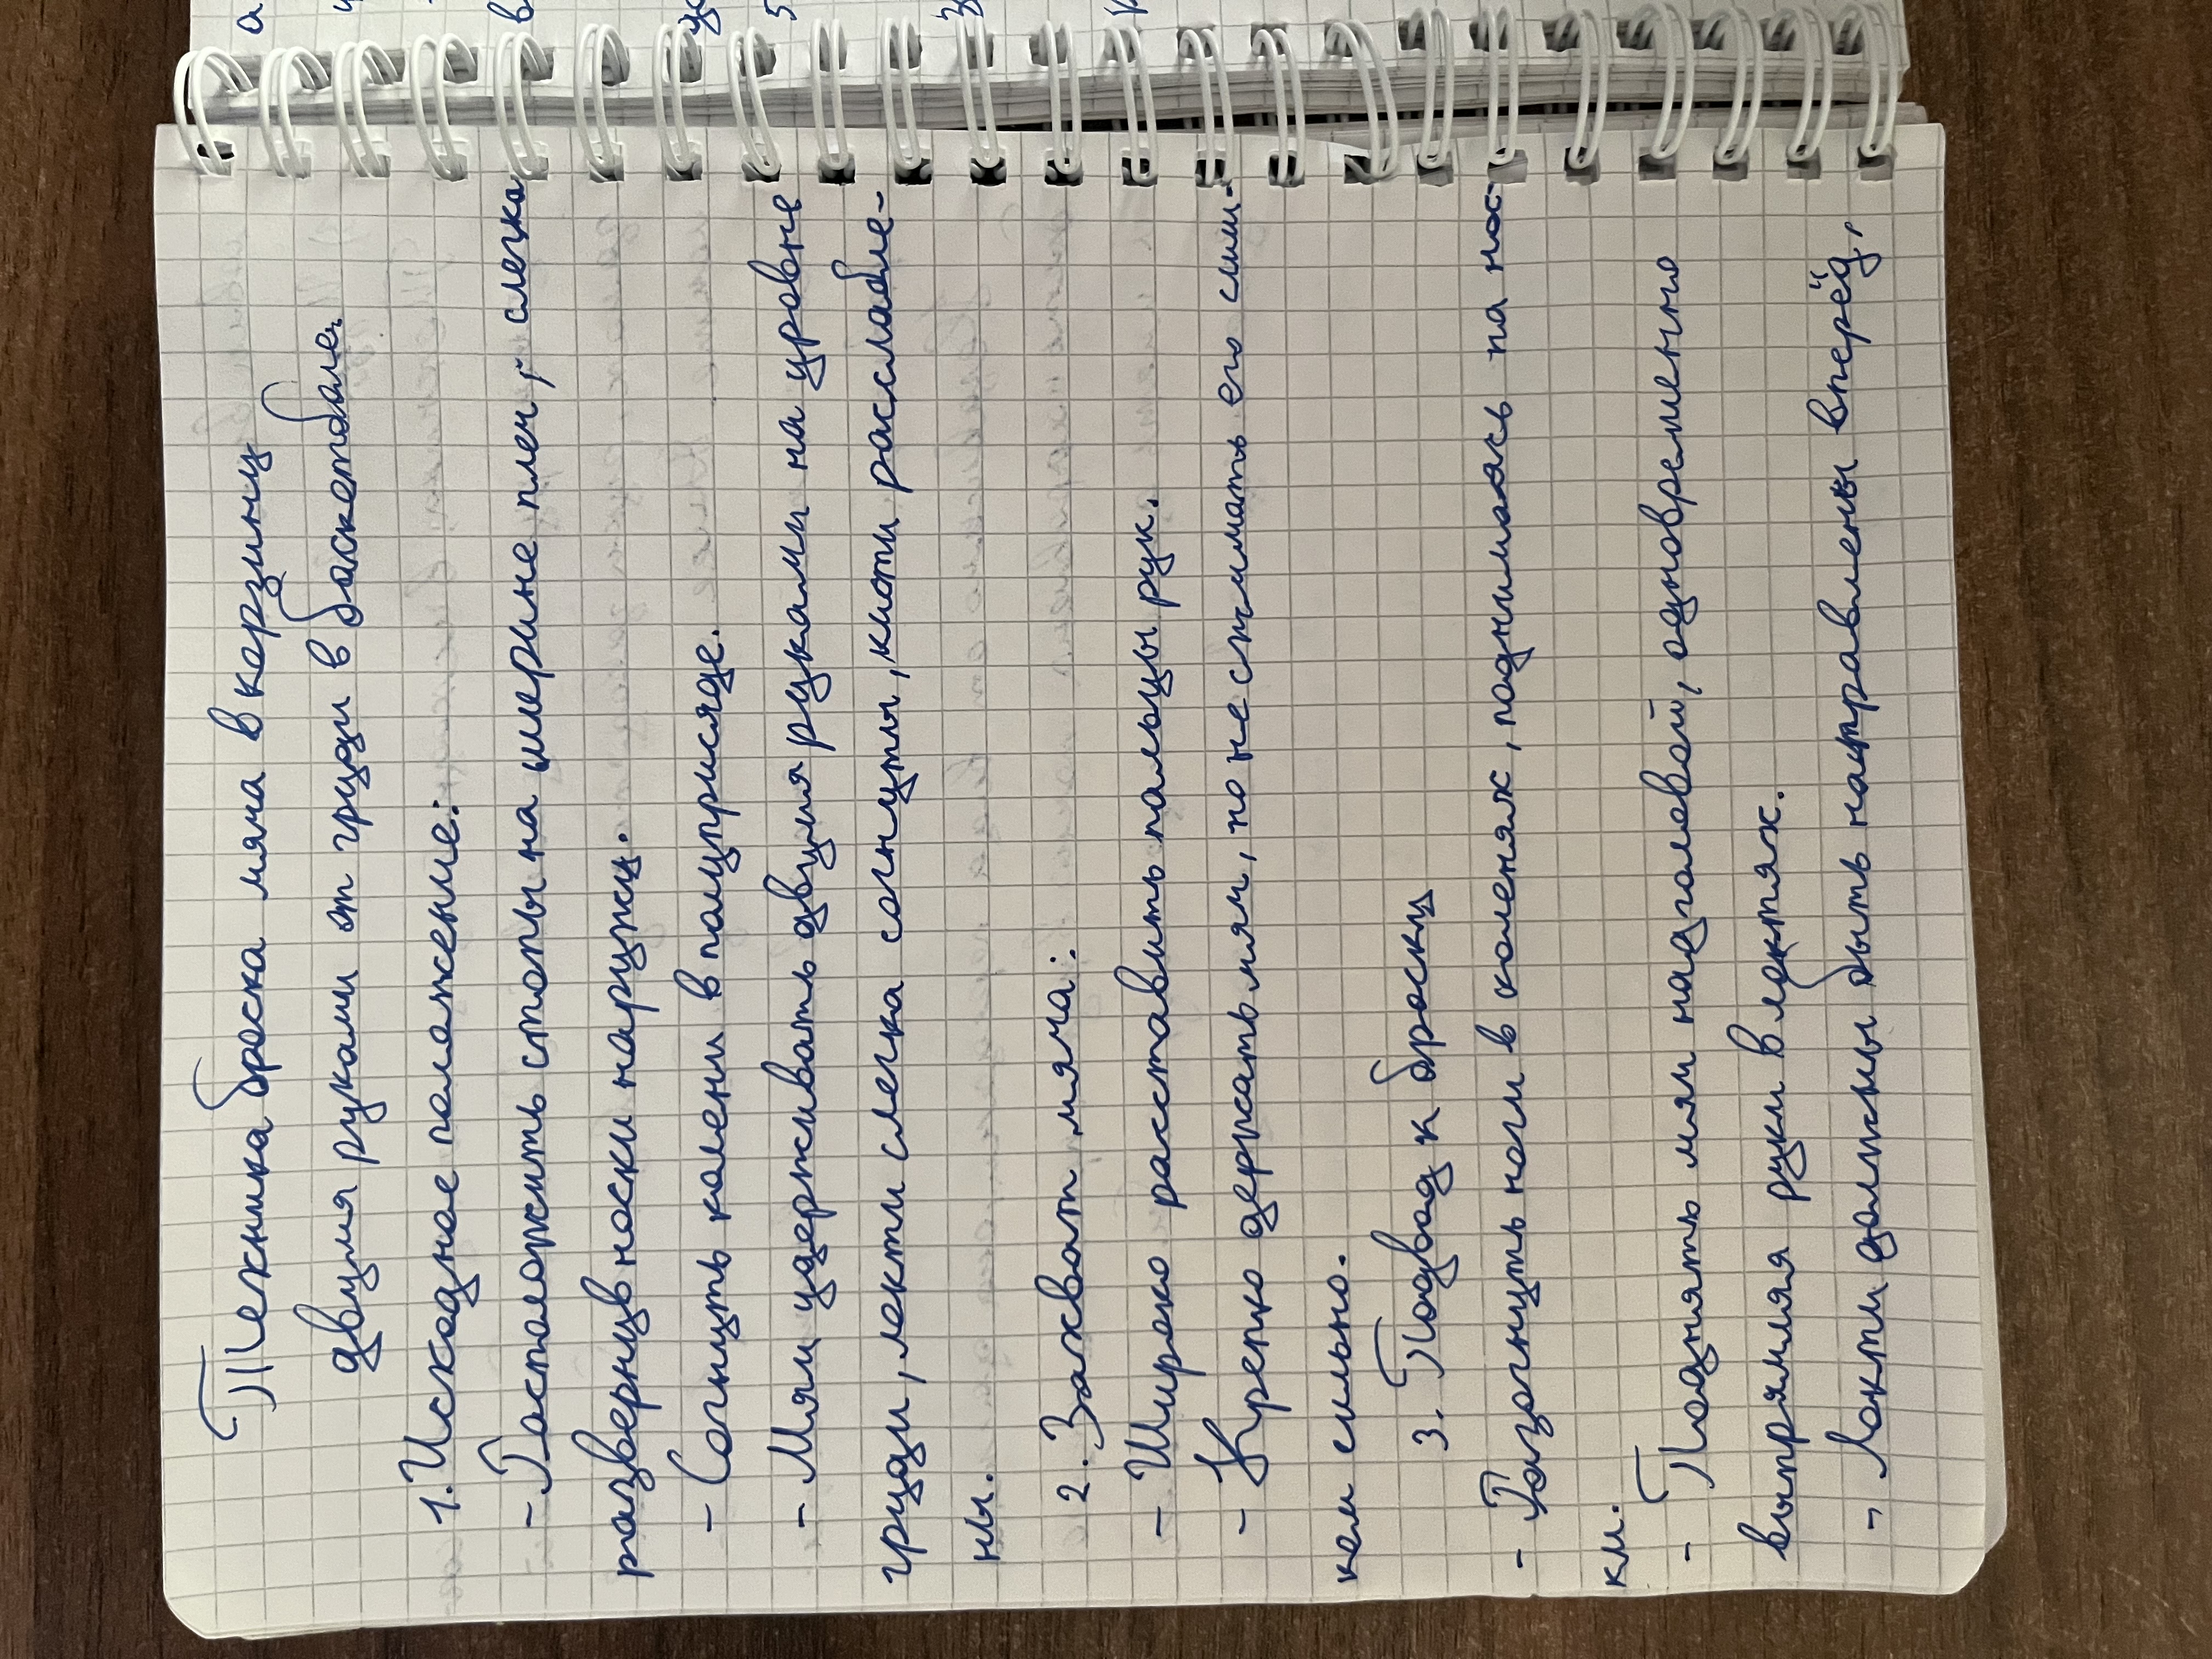 Техника броска мяча в корзину
двумя руками от груди в баскетболе.
1. Исходное положение:
- Расположить стопы на ширине плеч, слегка
развернув носки наружу.
- Согнуть колени в полуприсяде.
- Мяч удерживать двумя руками на уровне
груди, локти слегка согнуты, кисти расслабле-
ны.
2. Захват мяча:
- Широко расставить пальцы рук.
- Крепко держать мяч, но не сжимать его слиш-
ком сильно.
3. Подвод к броску
- Разогнуть ноги в коленях, поднимаясь на нос-
ки.
- Поднять мяч над головой, одновременно
выпрямляя руки в локтях.
- Локти должны быть направлены вперёд,